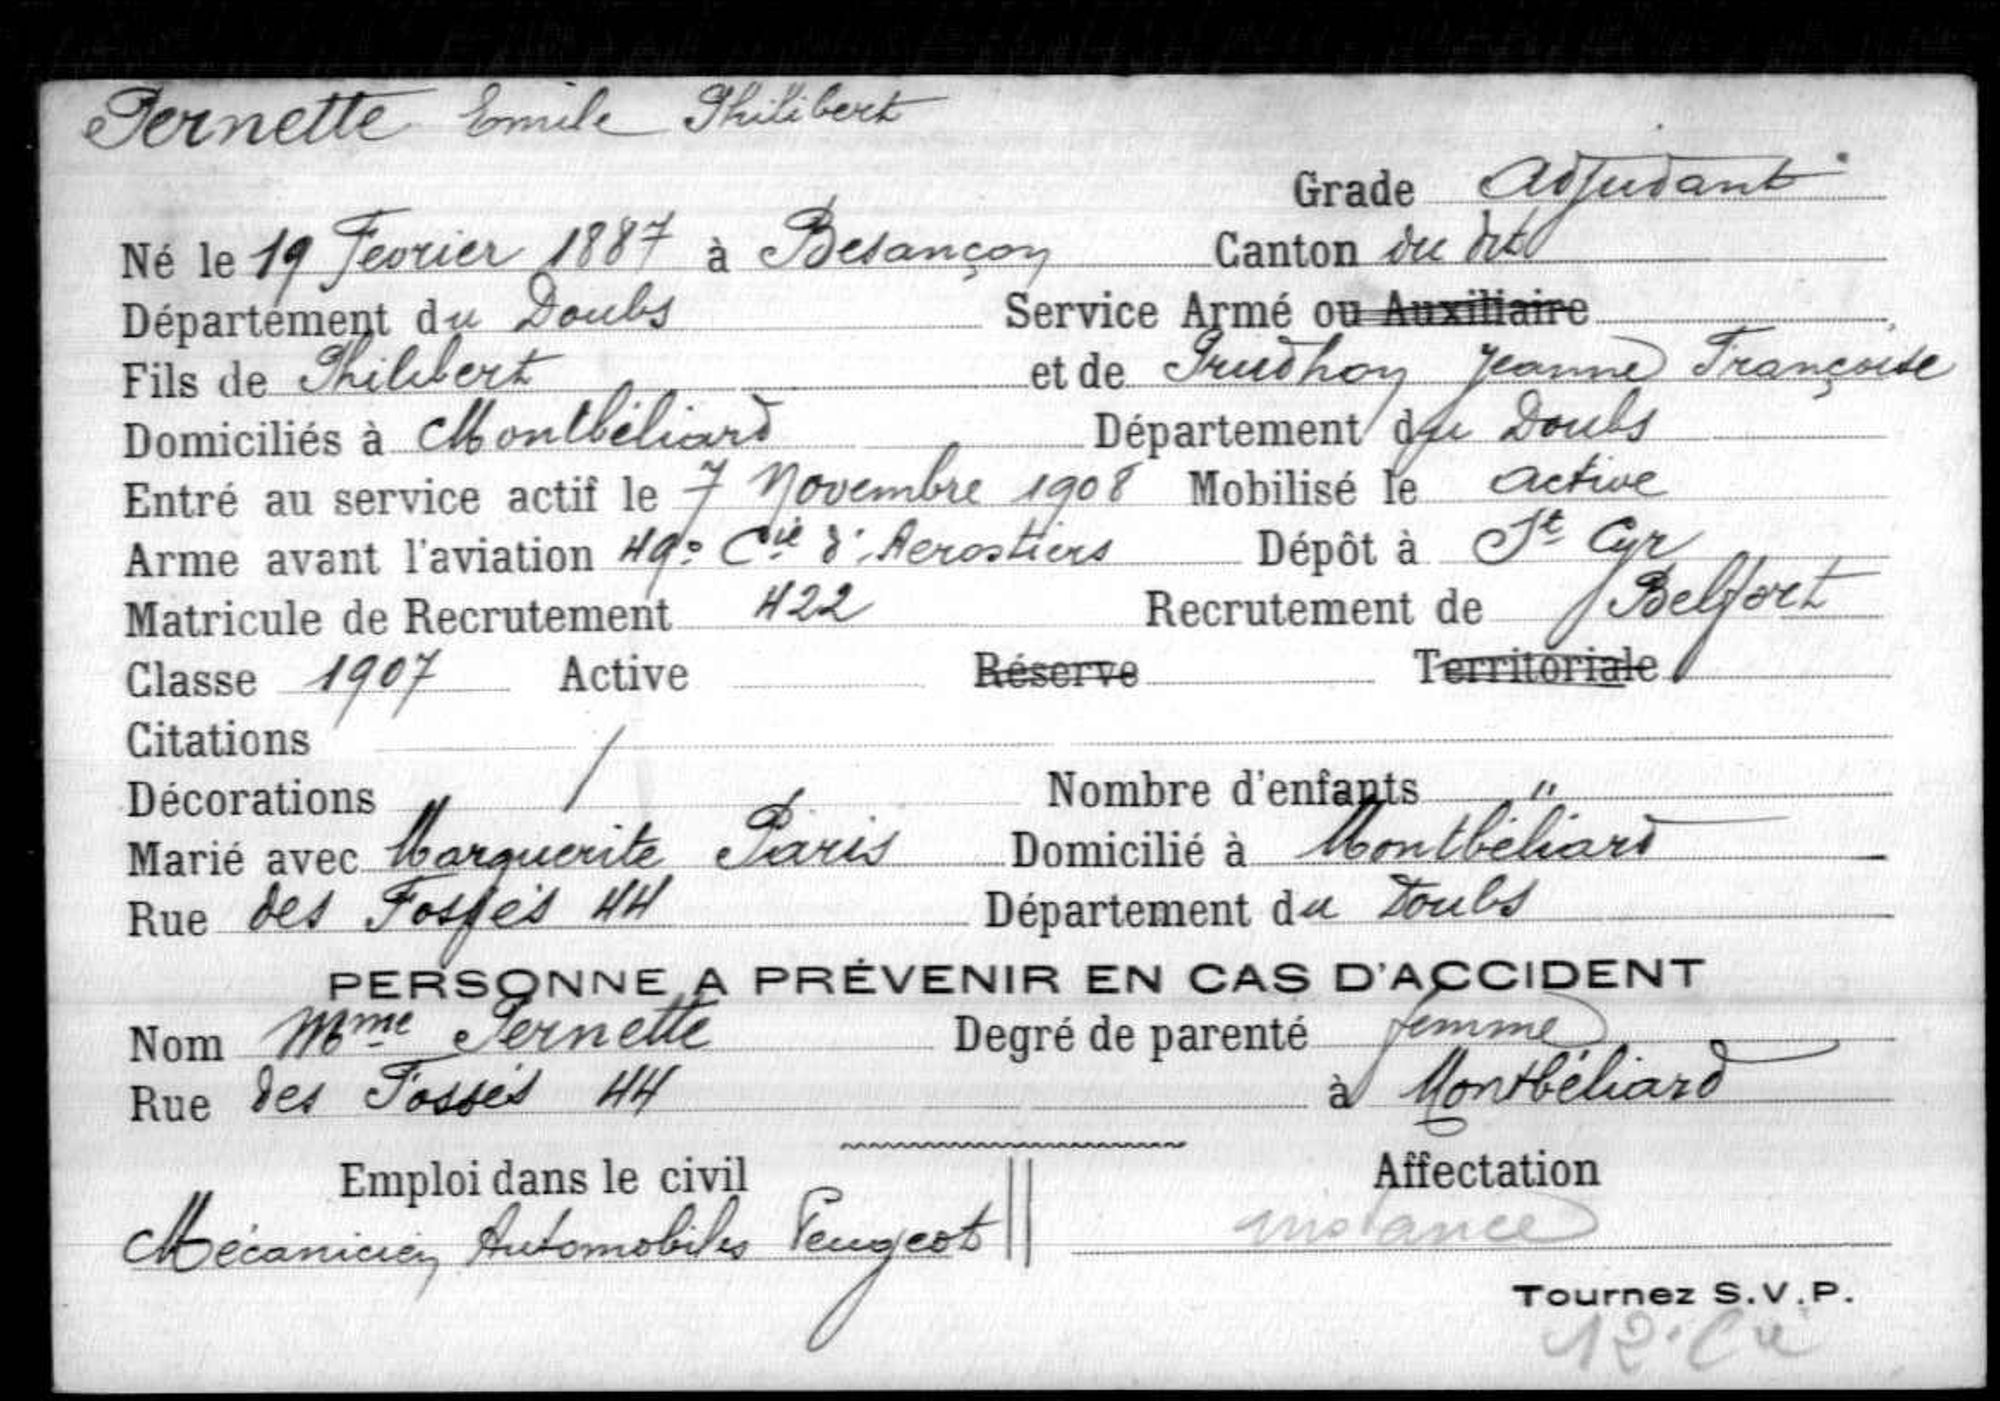 Pernette Emile Philibert
Grade Adjudant
Né le 19 Fevrier 1887 à Besançon Canton du dit
Département du Doubs Service Armé ou Auxiliaire
Fils de Philibert et de Prudhon Jeanne Françoise
Domiciliés à Montbéliard Département du Doubs
Entré au service actif le 7 Novembre 1908 Mobilisé le active
Arme avant l'aviation 49e Cie d'Aerostiers Dépôt à St Cyr
Matricule de Recrutement 422 Recrutement de Belfort
Classe 1907 Active Réserve Territoriale
Citations /
Décorations Nombre d'enfants "
Marié avec Marguerite Paris Domicilié à Montbéliard
Rue des Fossés 44 Département du Doubs
PERSONNE A PRÉVENIR EN CAS D'ACCIDENT
Nom Mme Pernette Degré de parenté femme
Rue des Fossés 44 à Montbéliard
Emploi dans le civil Affectation
Mécanicien Automobiles Peugeot instance
Tournez S.V.P.
12e Cie